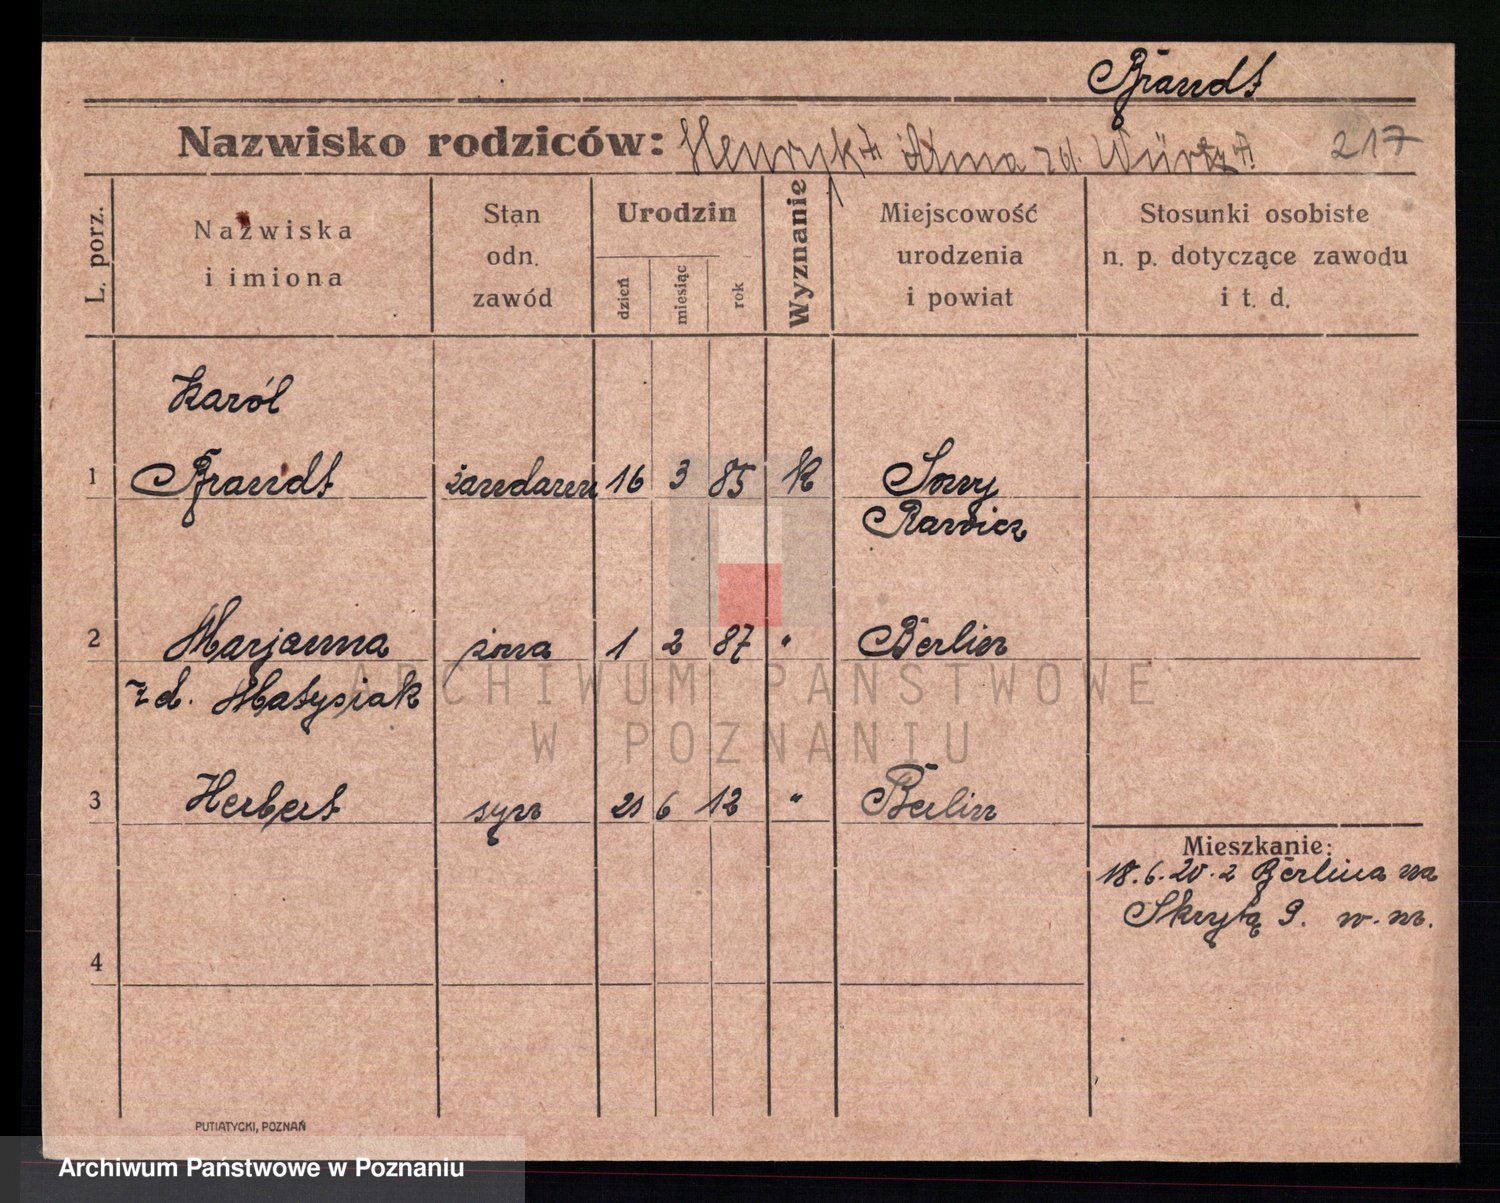 Brandt
Nazwisko rodziców: Henryk + i Alma zd. Würtz +. 217
L. porz.
Nazwiska i imiona
Stan odn. zawód
Urodzin
dzień
miesiąc
rok
Wyznanie
Miejscowość urodzenia i powiat
Stosunki osobiste n. p. dotyczące zawodu i t. d.
Karól
1 Brandt żandarm 16 3 85 K Sowy
Rawicz
2 Marjanna żona 1 2 87 " Berlin
zd. Matysiak
3 Herbert syn 21 6 12 " Berlin
Mieszkanie:
18.6.20. z Berlina na
Skrytą 9.
4
PUTIATYCKI, POZNAŃ
ARCHIWUM PAŃSTWOWE
W POZNANIU
Archiwum Państwowe w Poznaniu